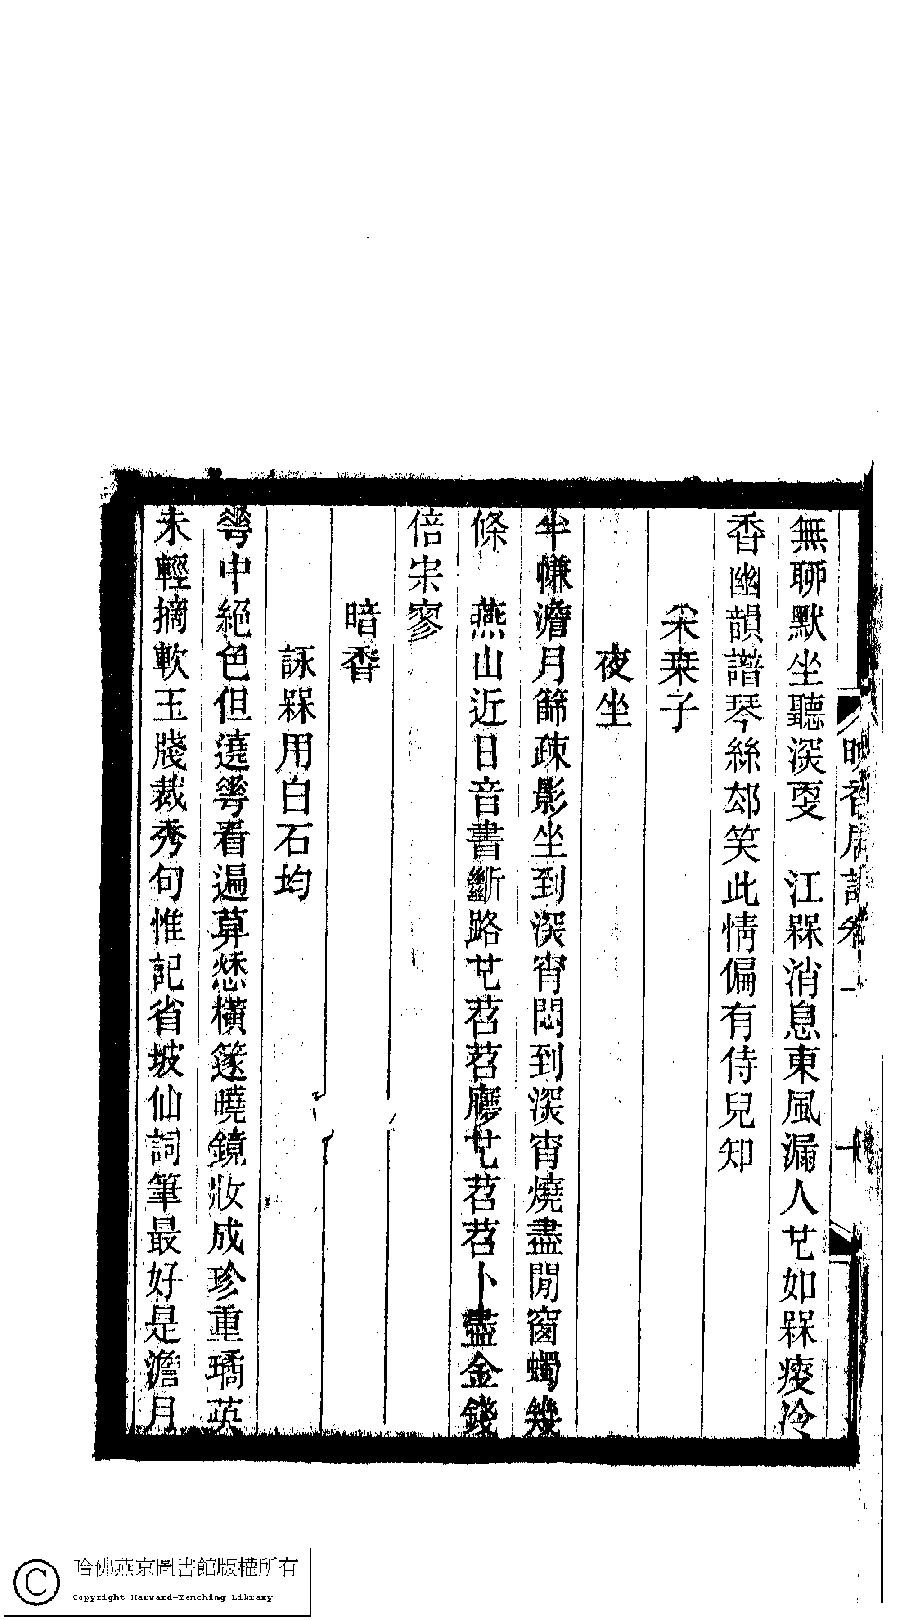 無聊默坐聽深叓　江槑消息東風漏人廿如槑痩冷
香幽韻譜琴絲郄笑此情偏有侍兒知
采桒子
夜坐
半慊澹月篩疎影坐到深宵悶到深宵燒盡閒窗蠋幾
條　燕山近日音書斷路廿苕苕廳廿苕苕卜盡金錢
倍宋寥
暗香
詠槑用白石均
蕚中絕色但遶蕚看遍算愁橫篴曉鏡妝成珍重璚英
未輕摘軟玉牋裁秀句惟記省坡仙詞筆最好是澹月
香居詞卷一
十
哈佛燕京圖書館版權所有
Copyright Harvard-Yenching Library